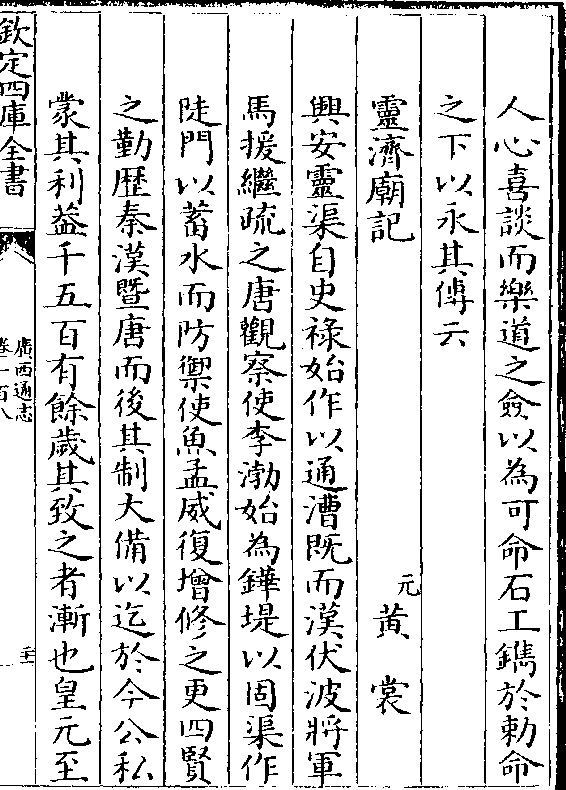 人心喜談而樂道之僉以為可命石工鐫於勅命
之下以永其傳云
靈濟廟記
元黄裳
興安靈渠自史禄始作以通漕既而漢伏波將軍
馬援繼疏之唐觀察使李渤始為鏵堤以固渠作
陡門以蓄水而防禦使魚孟威復增修之更四賢
之勤歴秦漢暨唐而後其制大備以迄於今公私
蒙其利益千五百有餘歳其致之者漸也皇元至
欽定四庫全書
廣西通志
卷一百八